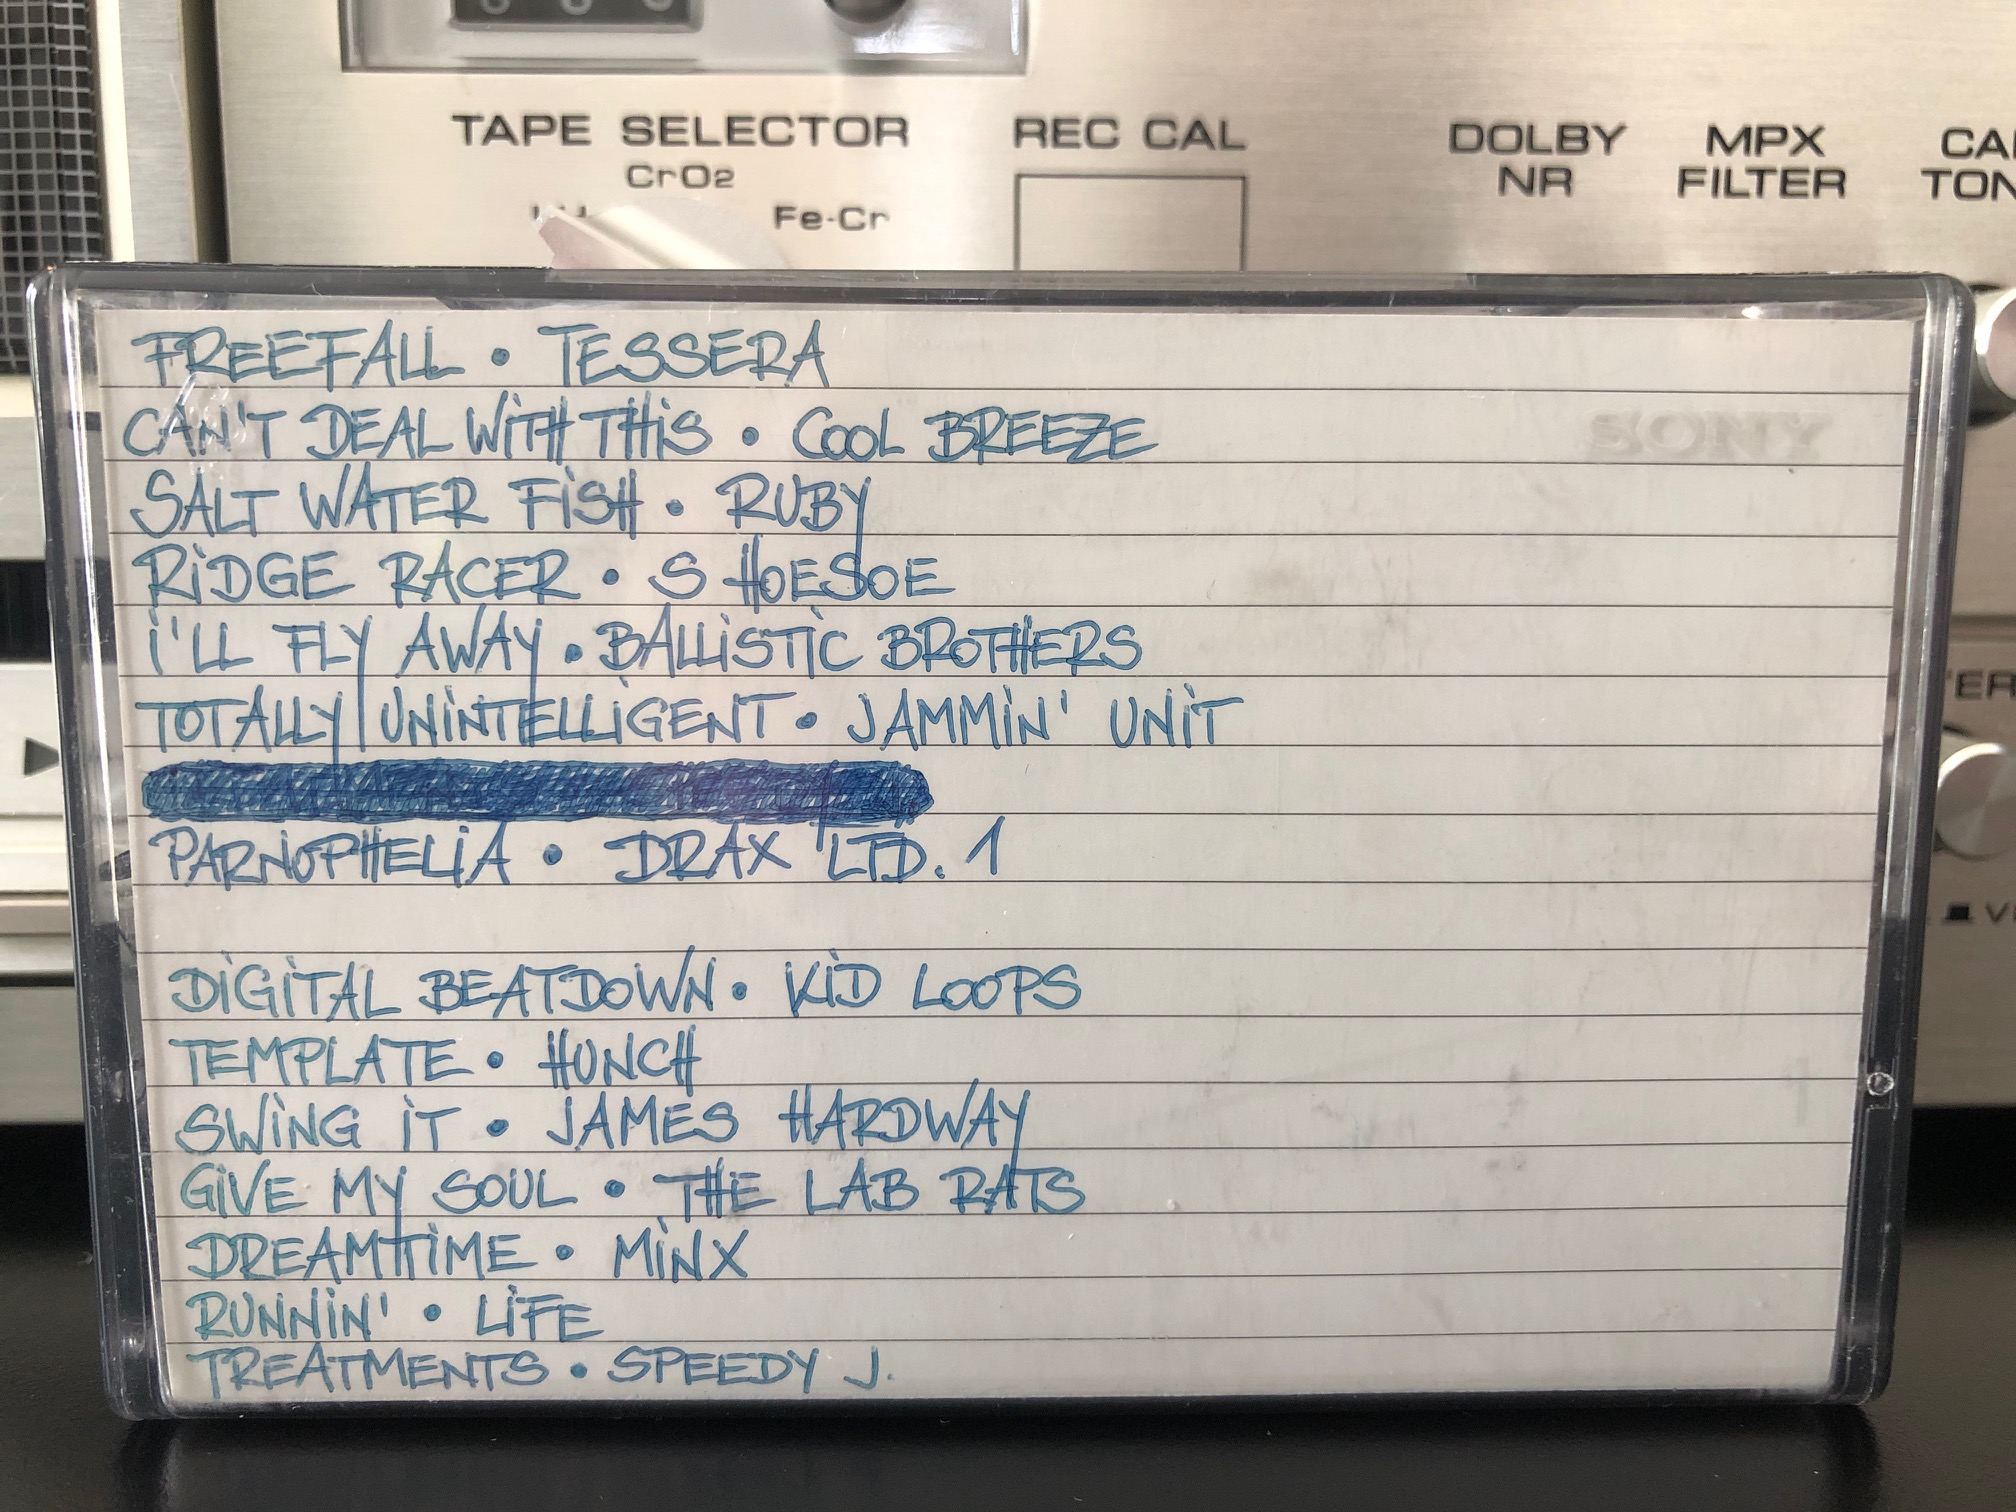 TAPE SELECTOR
CrO2
Fe-Cr
REC CAL
DOLBY
NR
MPX
FILTER
FREEFALL • TESSERA
CAN'T DEAL WiTH THiS • COOL BREEZE
SONY
SALT WATER FiSH • RUBY
RiDGE RACER • S HOESOE
i'LL FLY AWAY • BALLiSTiC BROTHERS
TOTALLY UNiNTELLiGENT • JAMMiN' UNiT
PARNOPHELiA • DRAX LTD. 1
DiGiTAL BEATDOWN • KiD LOOPS
TEMPLATE • HUNCH
SWiNG iT • JAMES HARDWAY
GiVE MY SOUL • THE LAB RATS
DREAMTiME • MiNX
RUNNiN' • LiFE
TREATMENTS • SPEEDY J.